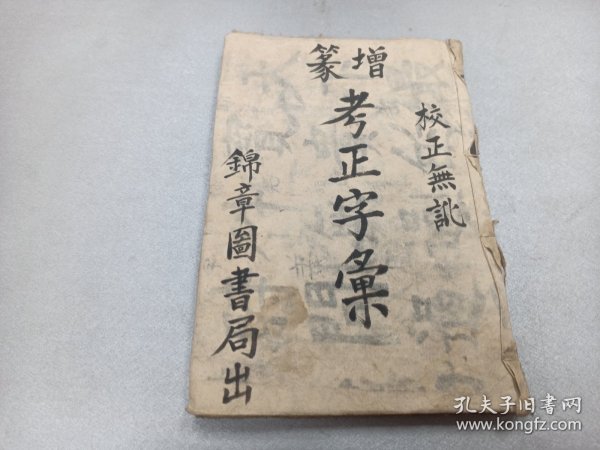 校正無訛
增篆
考正字彙
錦章圖書局出
孔夫子旧书网
www.kongfz.com